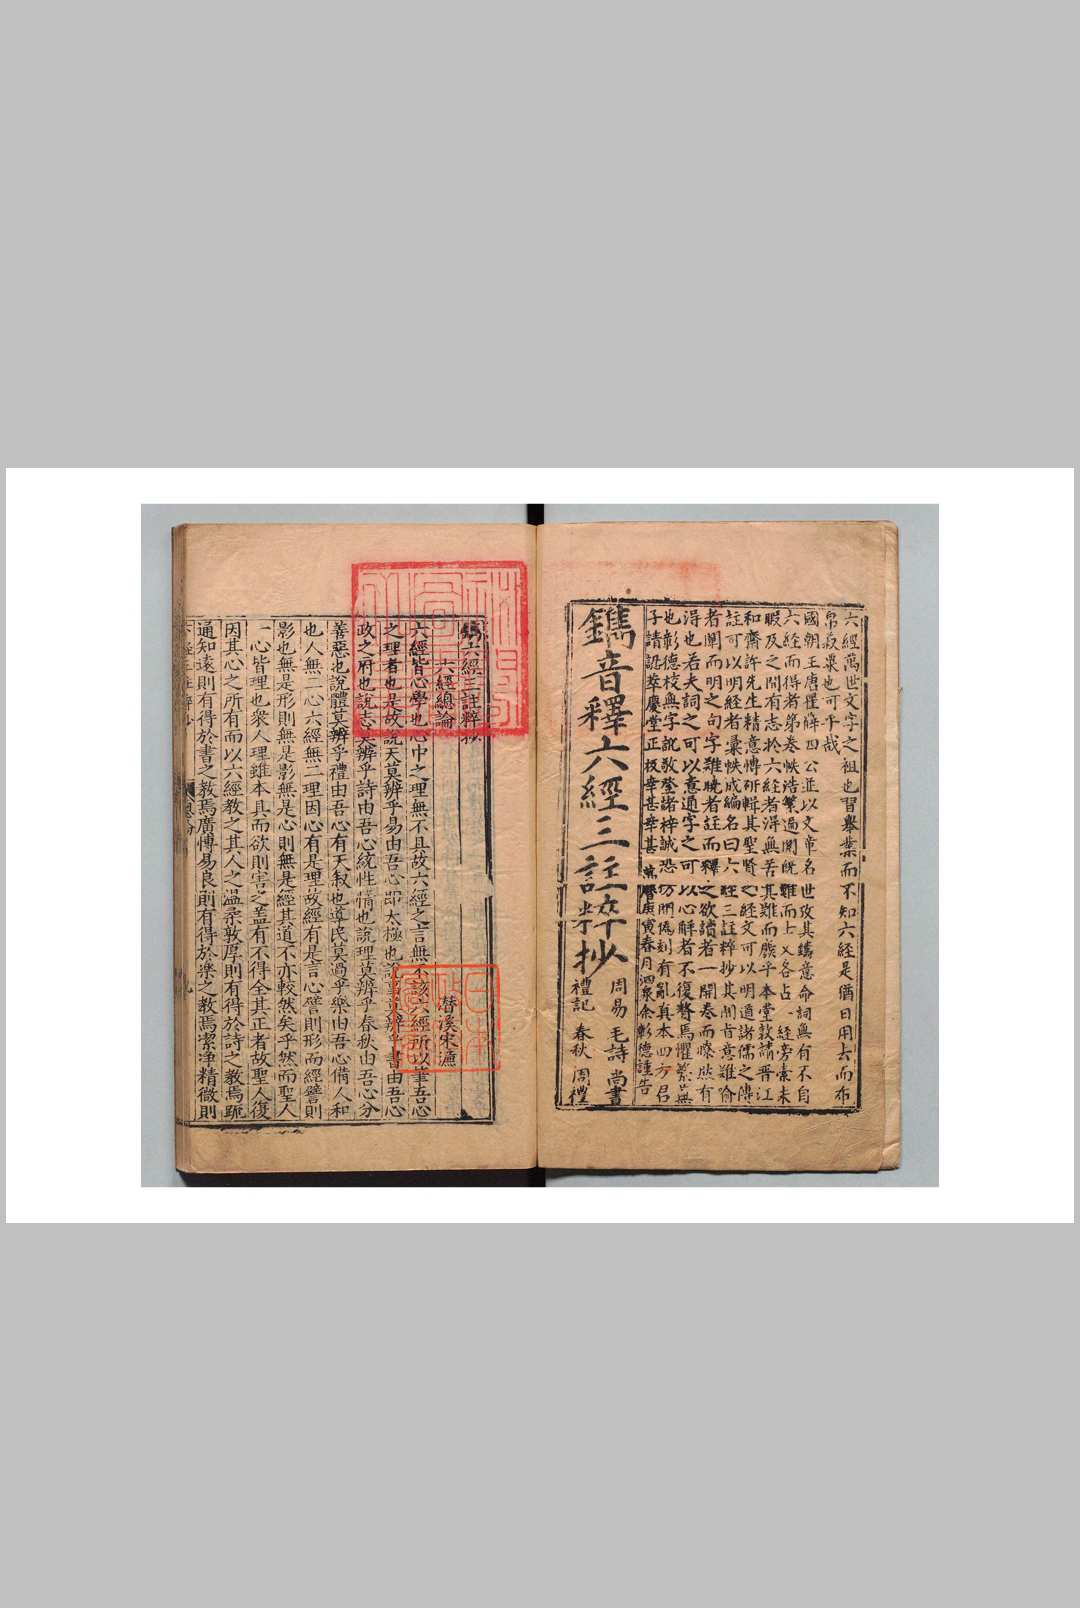 六經萬世文字之祖也習舉業而不知六經是猶日用去而布
帛菽粟也可乎哉
國朝王唐瞿薛四公並以文章名世攷其鑄意命詞無有不自
六經而得者第卷帙浩繁過閱旣難而士又各占一經旁索未
暇及之間有志於六經者淂無苦其難而廢乎本堂敦請晋江
和齋許先生精意慱研輯其聖賢之經文可以明道諸儒之傳
註可以明經者彚帙成編名曰六經三註粹抄其間肯意難喻
者闡而明之句字難曉者註而釋之欲讀者一開卷而瞭然有
淂也若夫詞之可以意通字之可以心解者不復贅焉懼繁蕪
也彰德校無字訛敢登諸梓誠恐坊間僞刻有亂真本四方君
子請認萃慶堂正板幸甚幸甚 萬曆庚寅春月泗泉余彰德謹告
鐫音釋六經三註粹抄
周易 毛詩 尚書
禮記 春秋 周禮
鐫六經三註粹抄
六經總論
潜溪宋濂
六經皆心學也心中之理無不具故六經之言無不該六經所以筆吾心
之理者也是故說天莫辨乎易由吾心即太極也說事莫辨乎書由吾心
政之府也說志莫辨乎詩由吾心統性情也說理莫辨乎春秋由吾心分
善惡也說體莫辨乎禮由吾心有天叙也導民莫過乎樂由吾心備人和
也人無二心六經無二理因心有是理故經有是言心譬則形而經譬則
影也無是形則無是影無是心則無是經其道不亦較然矣乎然而聖人
一心皆理也衆人理雖本具而欲則害之盖有不得全其正者故聖人復
因其心之所有而以六經教之其人之温柔敦厚則有得於詩之教焉䟽
通知遠則有得於書之教焉廣慱易良則有得於樂之教焉潔净精微則